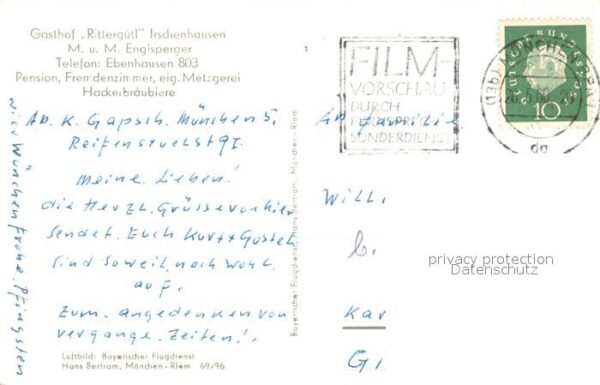 Gasthof „Rittergütl" Irschenhausen
M. u. M. Englsperger
Telefon: Ebenhausen 803
Pension, Fremdenzimmer, eig. Metzgerei
Hackerbräubiere
Ab. K. Gapsch. München 5.
Reifenstuelstr
Meine Lieben!
die Herzl. Grüsse von hier
sendet. Euch Kurt + Gustel
sind soweit noch wohl
auf.
Zum. angedencken. von
vergange. Zeiten!.
wir Wünchen Frohe. Pfingsten
Luftbild: Bayerischer Flugdienst
Hans Bertram, München-Riem 69/96
Bayerischer Flugdienst, Hans Bertram, München-Riem
FILM-
VORSCHAU
DURCH
FERNSPRECH
SONDERDIENST
DEUTSCHE BUNDESPOST
10
(13b) MÜNCHEN
dg
An Familie
Willi
b.
Kar
Gi
privacy protection
Datenschutz